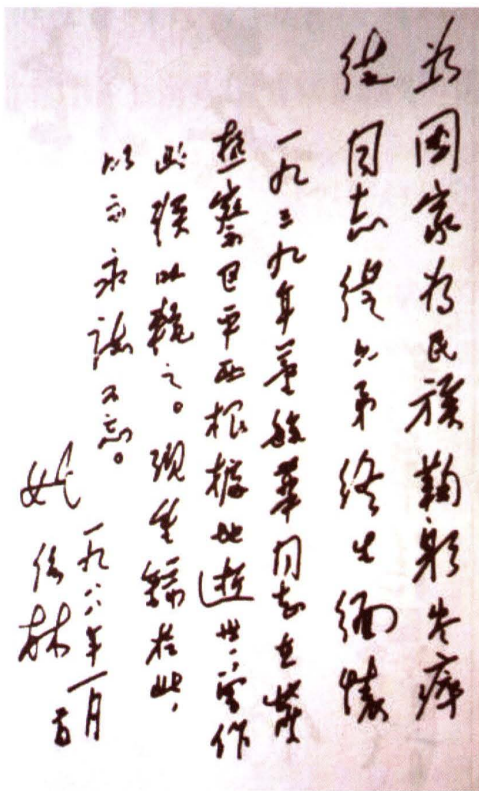 为国家为民族鞠躬尽瘁
同志弟终生缅怀
一九三九年董毓华同志在冀
热察区平西根据地逝世,曾作
此联以挽之。现重於此,
以示永誌不忘。
姚依林
一九八年一月